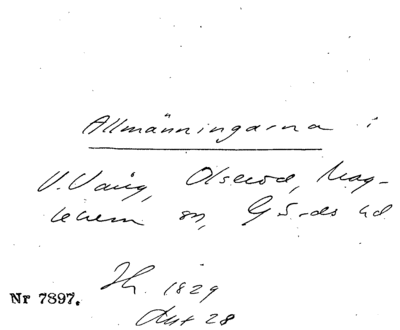 Allmänningarna i
V. Vång, Olseröd, Mag-
lehem sn, Gärds hd
Nr 7897. Jh. 1829
Akt 28